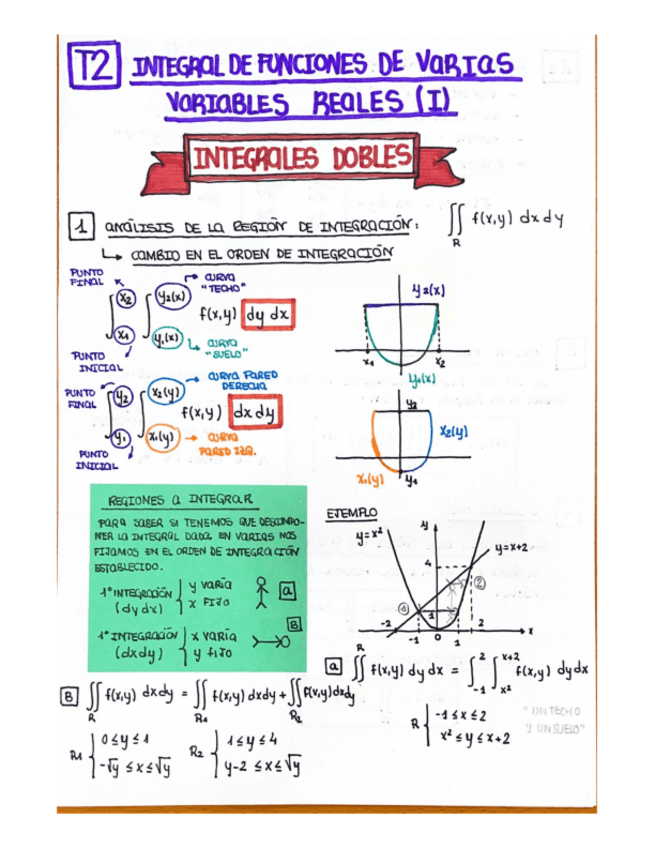 T2 INTEGRAL DE FUNCIONES DE VARIAS
VARIABLES REALES (I)
INTEGRALES DOBLES
1 ANÁLISIS DE LA REGIÓN DE INTEGRACIÓN: ∬ f(x,y) dx dy
R
↳ CAMBIO EN EL ORDEN DE INTEGRACIÓN
PUNTO FINAL
CURVA "TECHO"
∫ x₂ x₁ ∫ y₂(x) y₁(x) f(x,y) dy dx
PUNTO INICIAL
CURVA "SUELO"
y₂(x)
x₁ x₂
y₁(x)
PUNTO FINAL
CURVA PARED DERECHA
∫ y₂ y₁ ∫ x₂(y) x₁(y) f(x,y) dx dy
PUNTO INICIAL
CURVA PARED IZQ.
y₂
x₂(y)
x₁(y) y₁
REGIONES A INTEGRAR
PARA SABER SI TENEMOS QUE DESCOMPO-
NER LA INTEGRAL DADA EN VARIAS NOS
FIJAMOS EN EL ORDEN DE INTEGRACIÓN
ESTABLECIDO.
1º INTEGRACIÓN (dy dx) { y VARÍA x FIJO a
1º INTEGRACIÓN (dx dy) { x VARÍA y FIJO B
EJEMPLO
y
y=x² y=x+2
4
② ①
1
-2 -1 0 1 2 x
R
a ∬ f(x,y) dy dx = ∫₋₁² ∫ₓ²ˣ⁺² f(x,y) dy dx
R { -1 ≤ x ≤ 2
x² ≤ y ≤ x+2
"UN TECHO
Y UN SUELO"
B ∬ f(x,y) dx dy = ∬ f(x,y) dx dy + ∬ f(x,y) dx dy
R R₁ R₂
R₁ { 0 ≤ y ≤ 1
-√y ≤ x ≤ √y
R₂ { 1 ≤ y ≤ 4
y-2 ≤ x ≤ √y